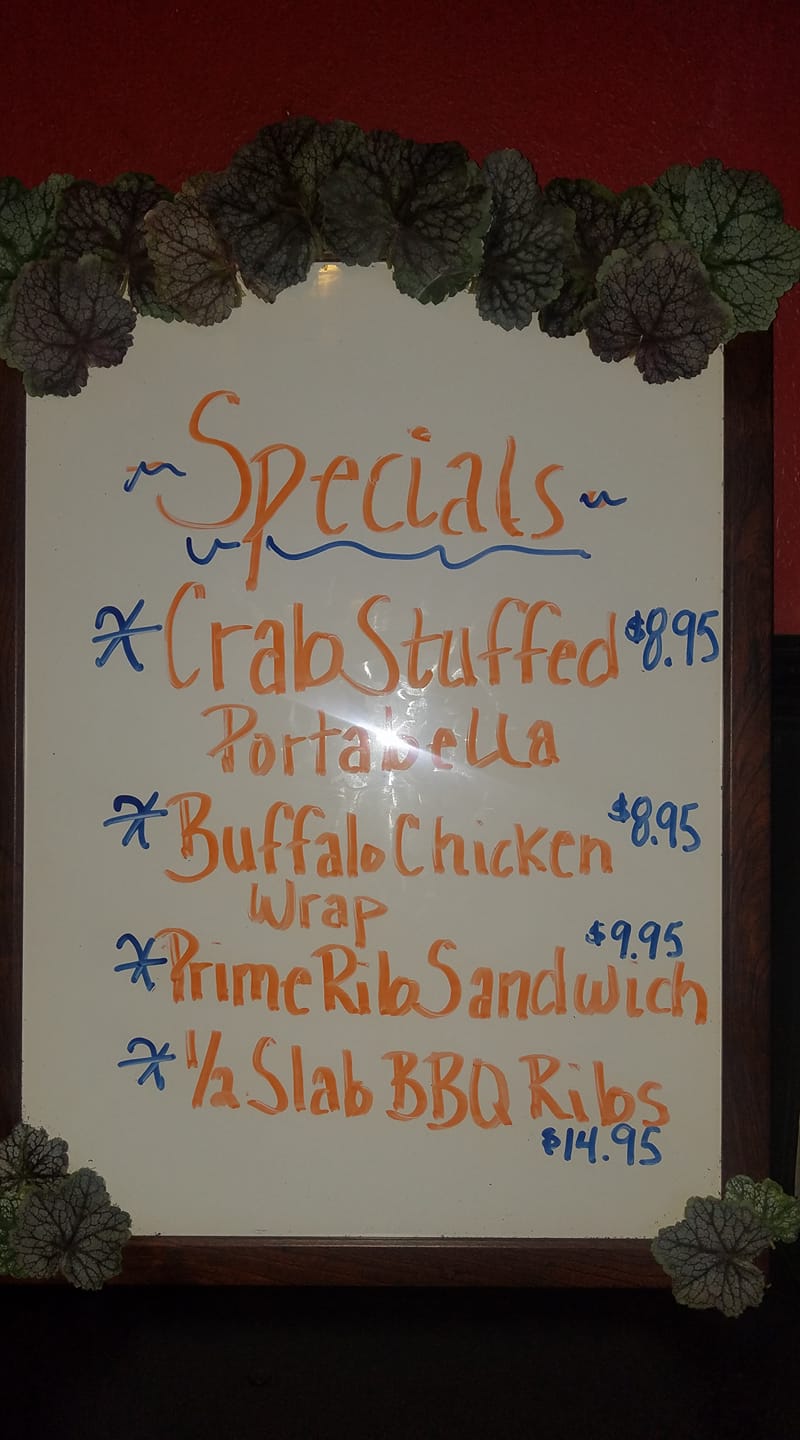 ~ Specials ~
* Crab Stuffed $8.95
Portabella
* Buffalo Chicken $8.95
Wrap
$9.95
* Prime Rib Sandwich
* 1/2 Slab BBQ Ribs
$14.95